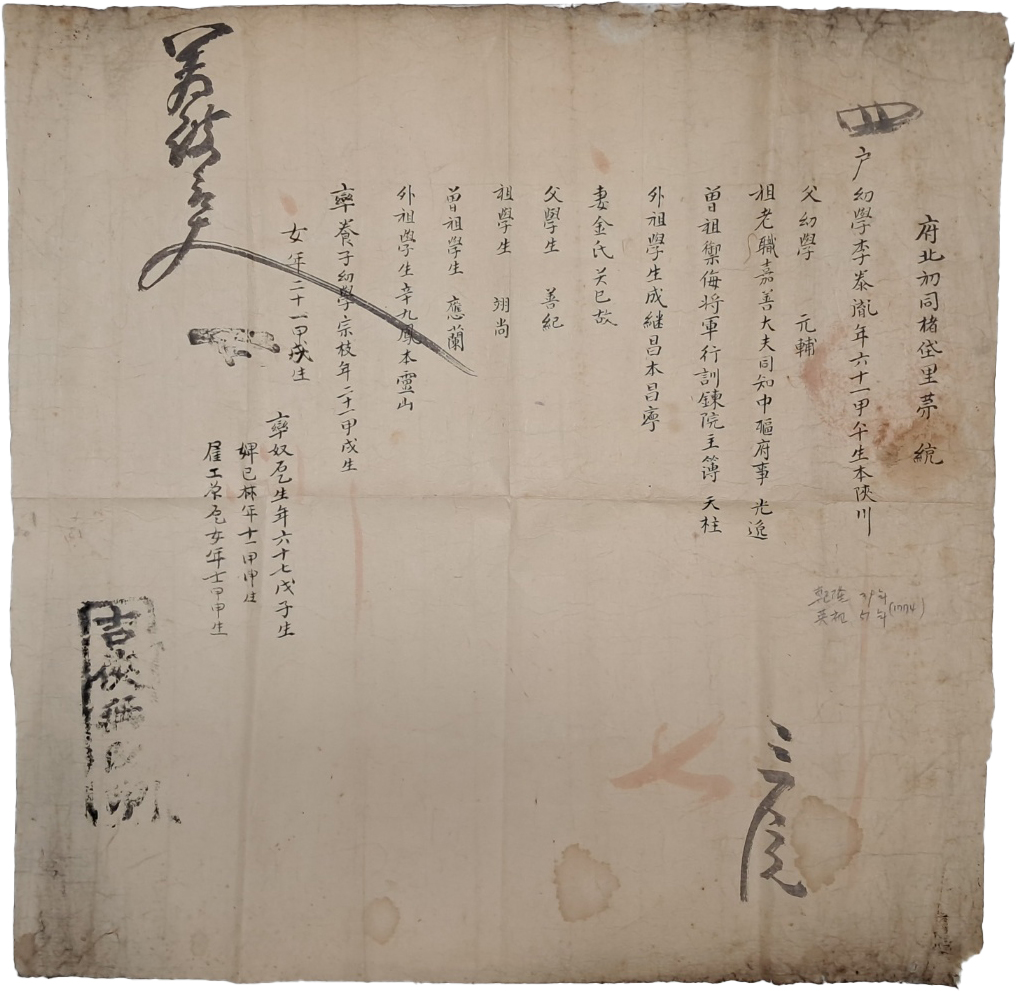 府北初同楮岱里第 統
戶幼學李泰胤年六十一甲午生本陜川
父幼學 元輔
祖老職嘉善大夫同知中樞府事 光逸
曾祖禦侮將軍行訓鍊院主簿 天柱
外祖學生成継昌本昌寧
妻金氏 已故
父學生 善紀
祖學生 翊尚
曾祖學生 應蘭
外祖學生辛九鳳本靈山
率養子幼學宗枝年二十一甲戌生
女年二十一甲戌生
率奴 生年六十七戊子生
婢 年十一甲申生
雇工 女年十一甲申生
乾隆 39年
英祖 年 (1774)